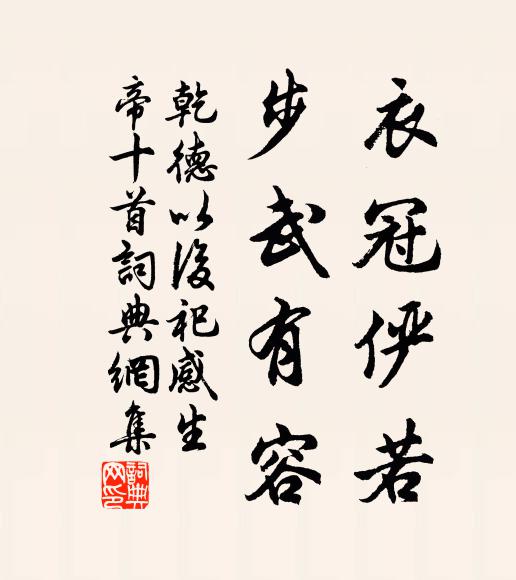 衣冠俨若
步武有容
乾德以後祀感生
帝十首詞典網集
詞典网印